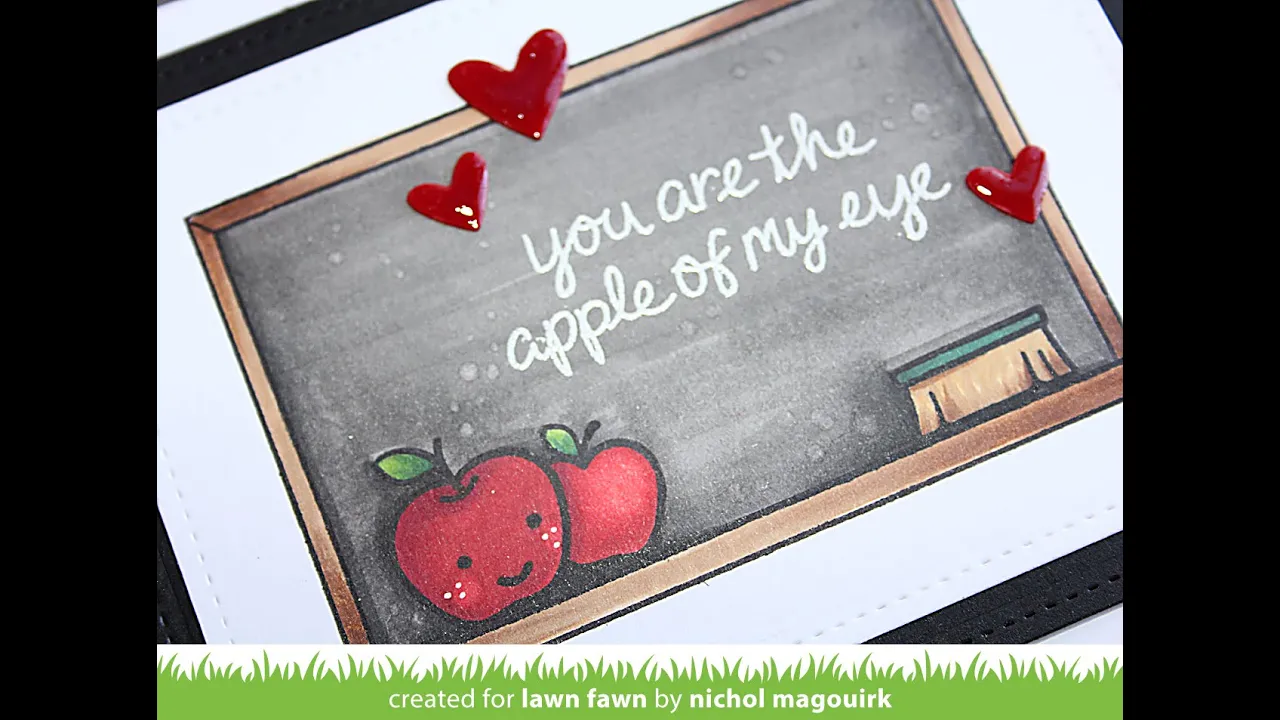 you are the
apple of my eye
created for lawn fawn by nichol magouirk